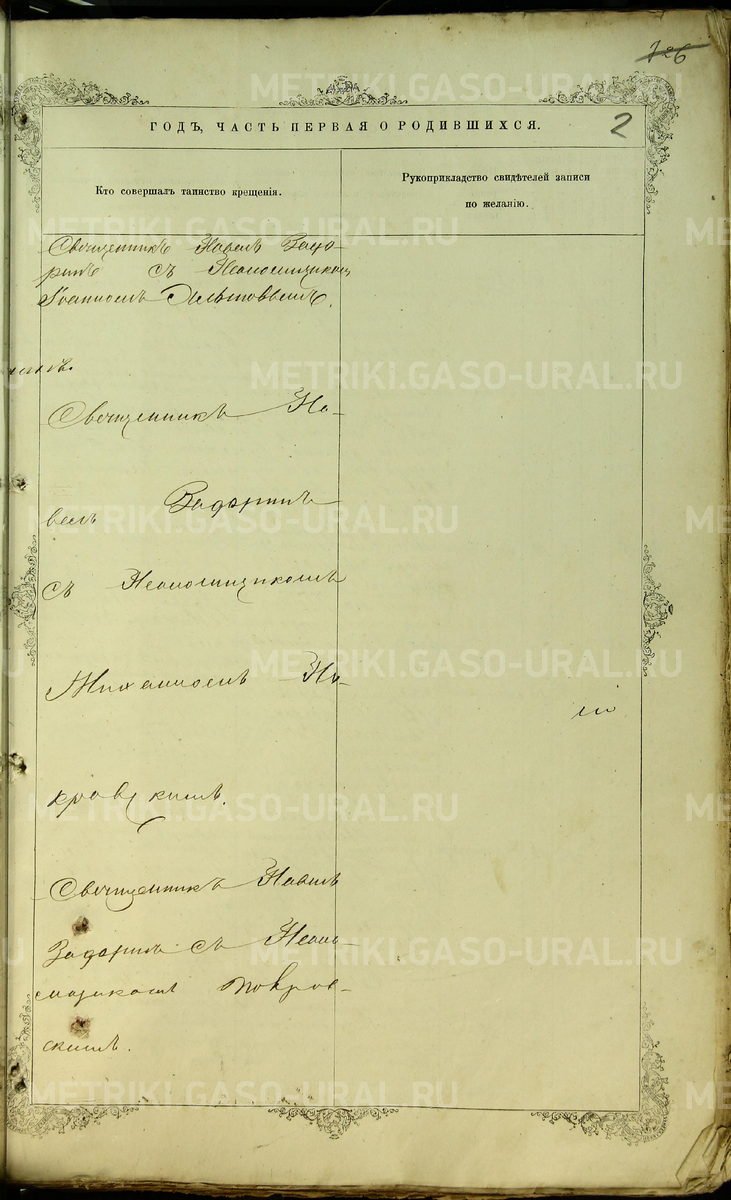 126
2
ГОДЪ, ЧАСТЬ ПЕРВАЯ О РОДИВШИХСЯ.
Кто совершалъ таинство крещенія.
Рукоприкладство свидѣтелей записи
по желанію.
Священникъ Павелъ
съ Псаломщикомъ
Іоанномъ
Священникъ Па-
велъ
съ Псаломщикомъ
По-
кровскимъ.
Священникъ Павелъ
съ Псало-
мщикомъ Покров-
скимъ.
METRIKI.GASO-URAL.RU